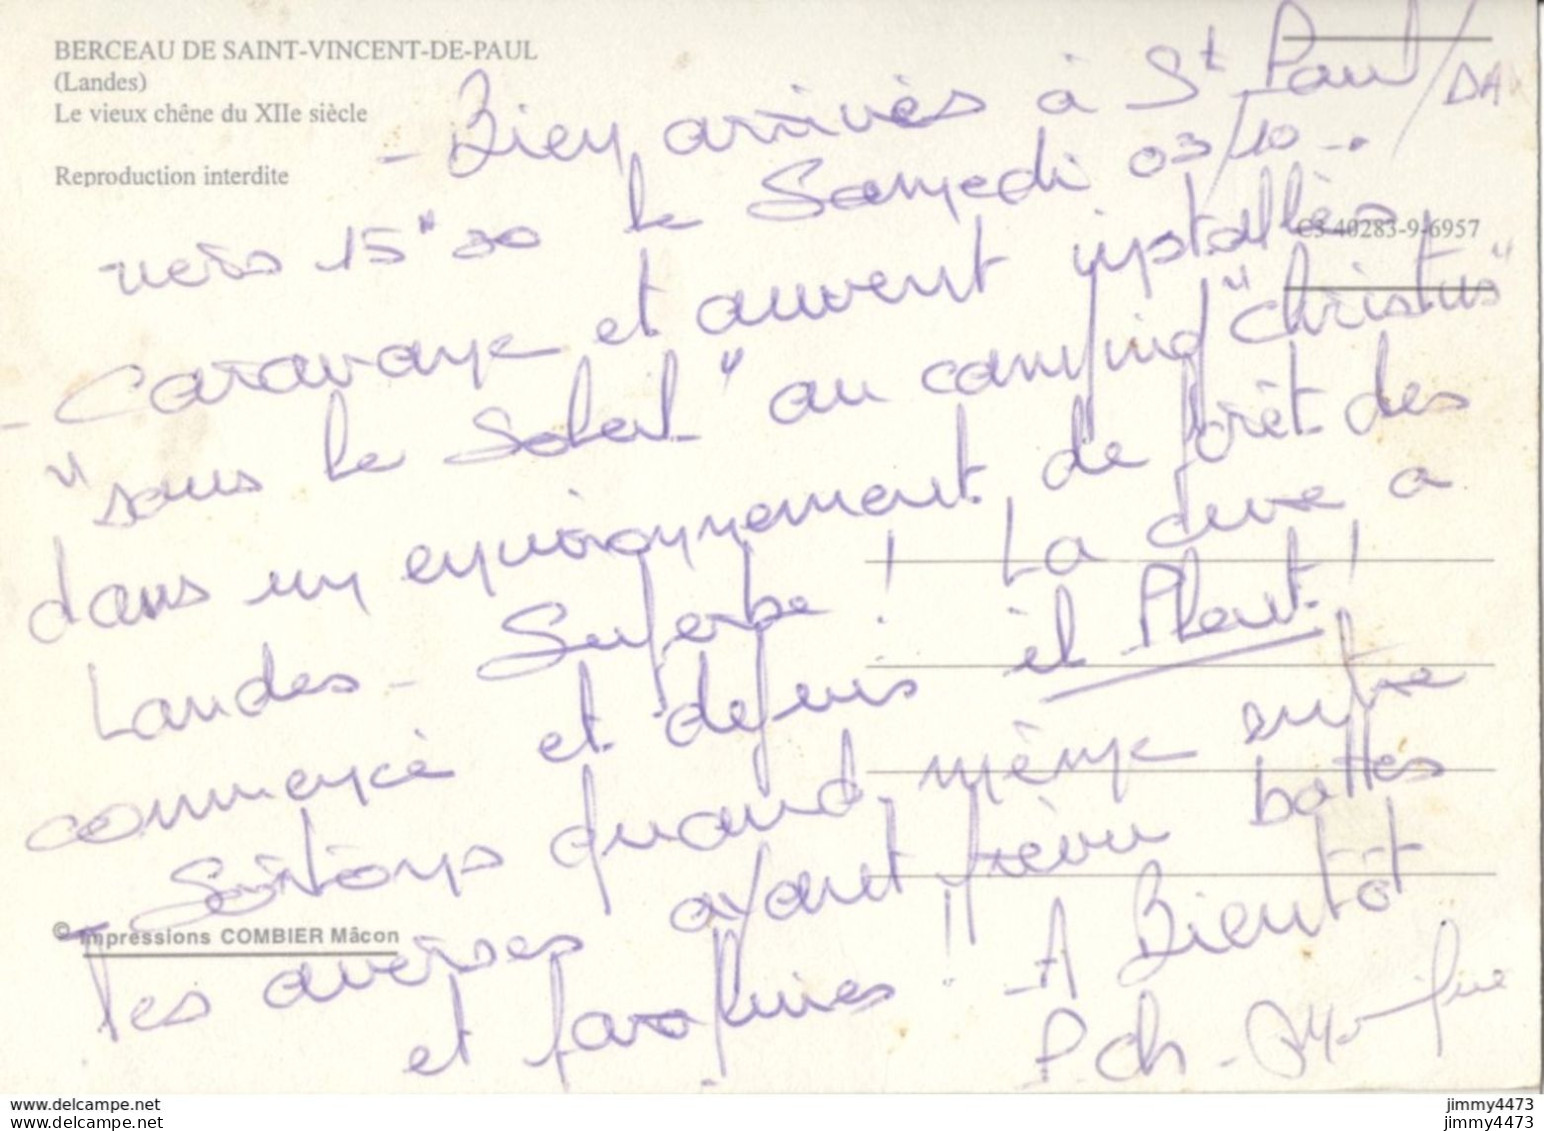 BERCEAU DE SAINT-VINCENT-DE-PAUL
(Landes)
Le vieux chêne du XIIe siècle
Reproduction interdite
CS 40283-9-6957
- Bien arrivés à St Paul/DAX
vers 15"30 le Samedi 03/10 -.
- Caravane et auvent installés
"sous le Soleil" au camping "Christus"
dans un environnement de forêt des
Landes - Superbe ! La cure a
commencé et depuis il Pleut !
Sortons quand même entre
les averses ayant prévu bottes
et parapluies ! A Bientôt
© Impressions COMBIER Mâcon
www.delcampe.net
www.delcampe.net
jimmy4473
jimmy4473